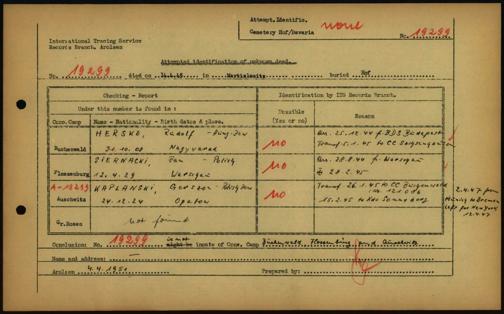 Attempt.Identific.
Cemetery Hof/Bavaria
none
No. 19299
International Tracing Service
Records Branch, Arolsen
Attempted identification of unknown dead.
No. 19299 died on in buried Hof
Checking - Report
Under this number is found:
Conc.Camp Name - Nationality - Birth dates & place.
Identification by ITS Records Branch.
Possible (Yes or no)
Reason
HERSKO, Rudolf -
Buchenwald 31.10.08
no
Arr. 25.12.44 f. BDS Budapest
Transf. 5.1.45 to CC
SIERNACKI, Jan - Polish
Flossenburg 12.4.29 Warsaw
no
Arr. 28.8.44 f. Warsaw
28.2.45
A-19299 KAPLANSKI, Gerszon -
Auschwitz 24.12.24 Opatow
no
Transf. 26.1.45 to CC Buchenwald
15.2.45 to Kdo Sonneberg
2.4.47 from
to Bremen
left for New York
12.4.47
Gr.Rosen not found
Conclusion: No. 19299 is not might be inmate of Conc. Camp Buchenwald, Flossenburg and Auschwitz
Name and address:
Arolsen 4.4.1951 Prepared by: